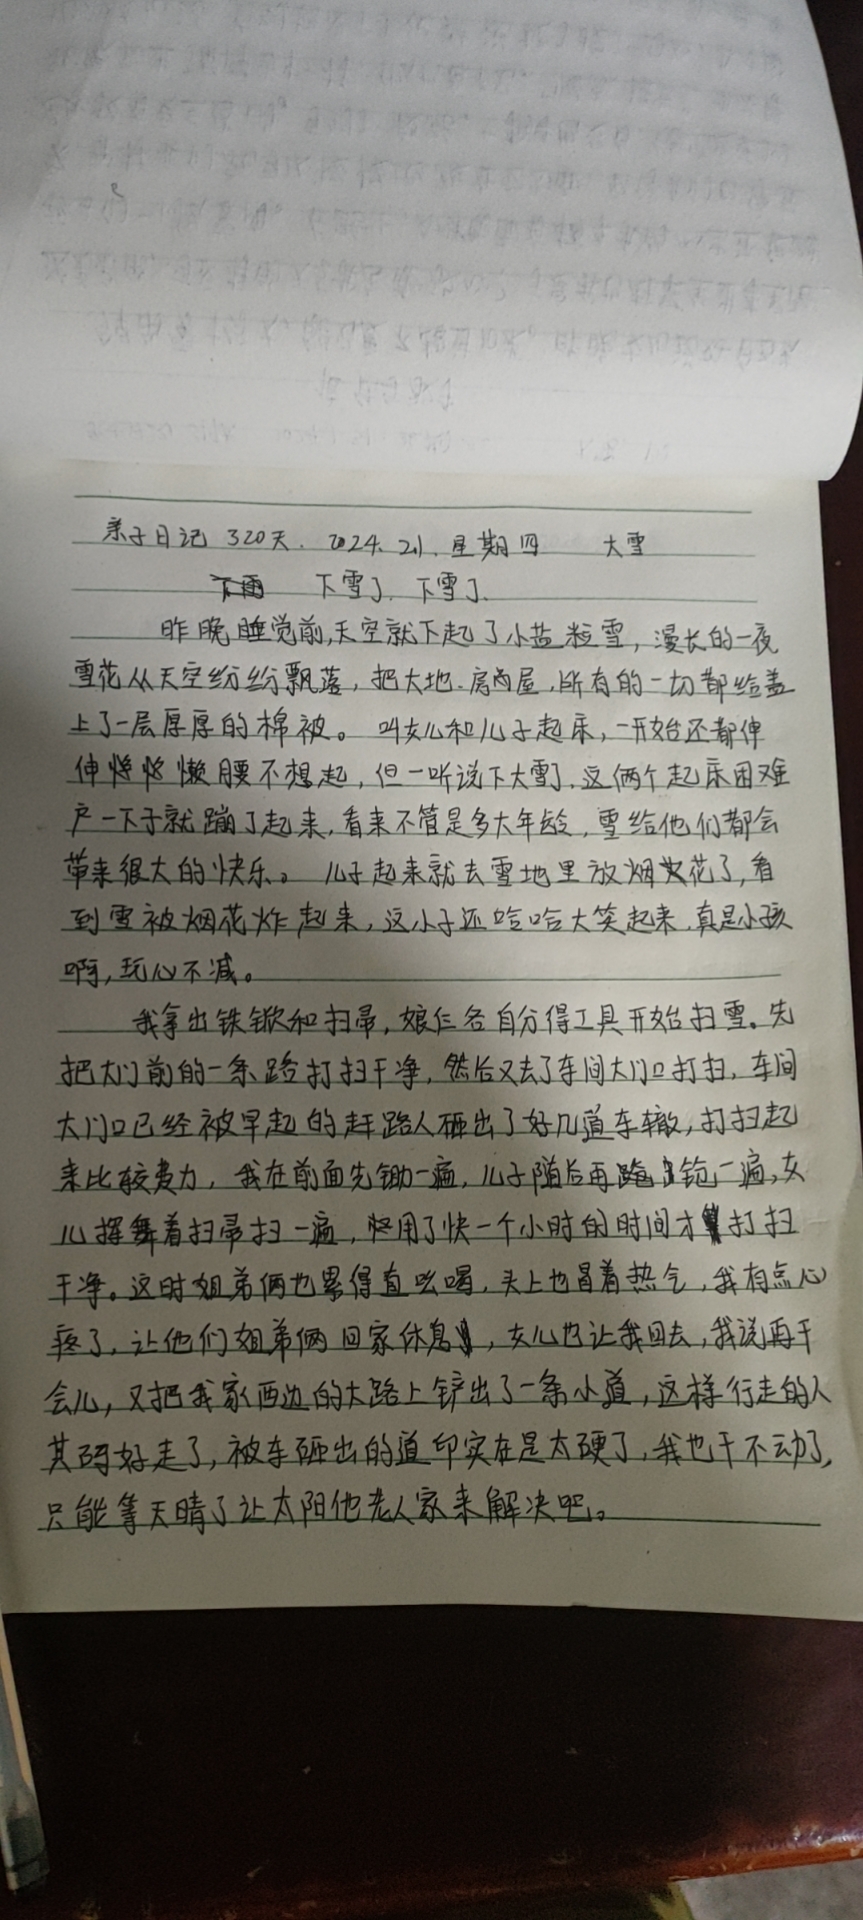 亲子日记 320天. 2024. 2.1. 星期四 大雪
下雪了. 下雪了.
昨晚睡觉前,天空就下起了小盐粒雪，漫长的一夜
雪花从天空纷纷飘落，把大地.房屋.所有的一切都给盖
上了一层厚厚的棉被。叫女儿和儿子起床，一开始还都伸
伸 懒腰不想起，但一听说下大雪了.这俩个起床困难
户一下子就蹦了起来，看来不管是多大年龄，雪给他们都会
带来很大的快乐。儿子起来就去雪地里放烟花了，看
到雪被烟花炸起来，这小子还哈哈大笑起来.真是小孩
啊，玩心不减。
我拿出铁锨和扫帚，娘仨各自分得工具开始扫雪。先
把大门前的一条路打扫干净，然后又去了车间大门口打扫，车间
大门口已经被早起的赶路人砸出了好几道车辙，打扫起
来比较费力，我在前面先锄一遍，儿子随后再 一遍，女
儿挥舞着扫帚扫一遍， 用了快一个小时的时间才打扫
干净。这时姐弟俩也累得直吆喝，头上也冒着热气，我有点心
疼了，让他们姐弟俩回家休息，女儿也让我回去，我说再干
会儿，又把我家西边的大路上铲出了一条小道，这样行走的人
其码好走了，被车砸出的道印实在是太硬了，我也干不动了，
只能等天晴了让太阳他老人家来解决吧。